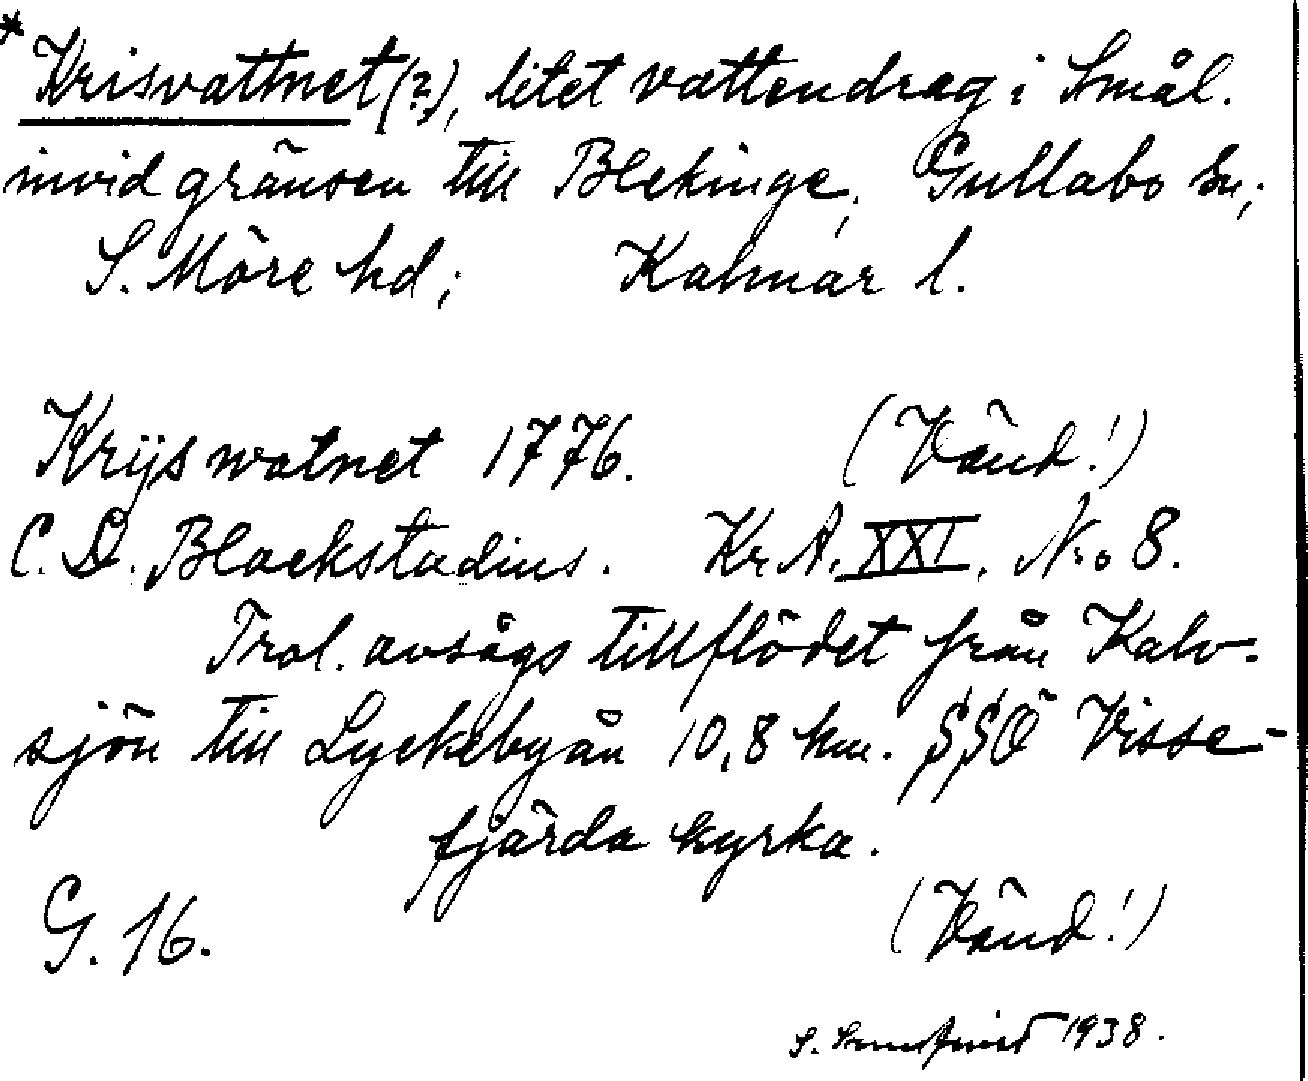 * Krisvattnet (?), litet vattendrag i Smål.
invid gränsen till Blekinge; Gullabo sn;
S. Möre hd; Kalmar l.
Krijs watnet 1776. (Vänd!)
C. D. Blackstadius. Kr. A. XXI, N:o 8.
Trol. avsågs tillflödet från Kalv-
sjön till Lyckebyån 10,8 km. SSÖ Visse-
fjärda kyrka.
G. 16. (Vänd!)
S. 1938.